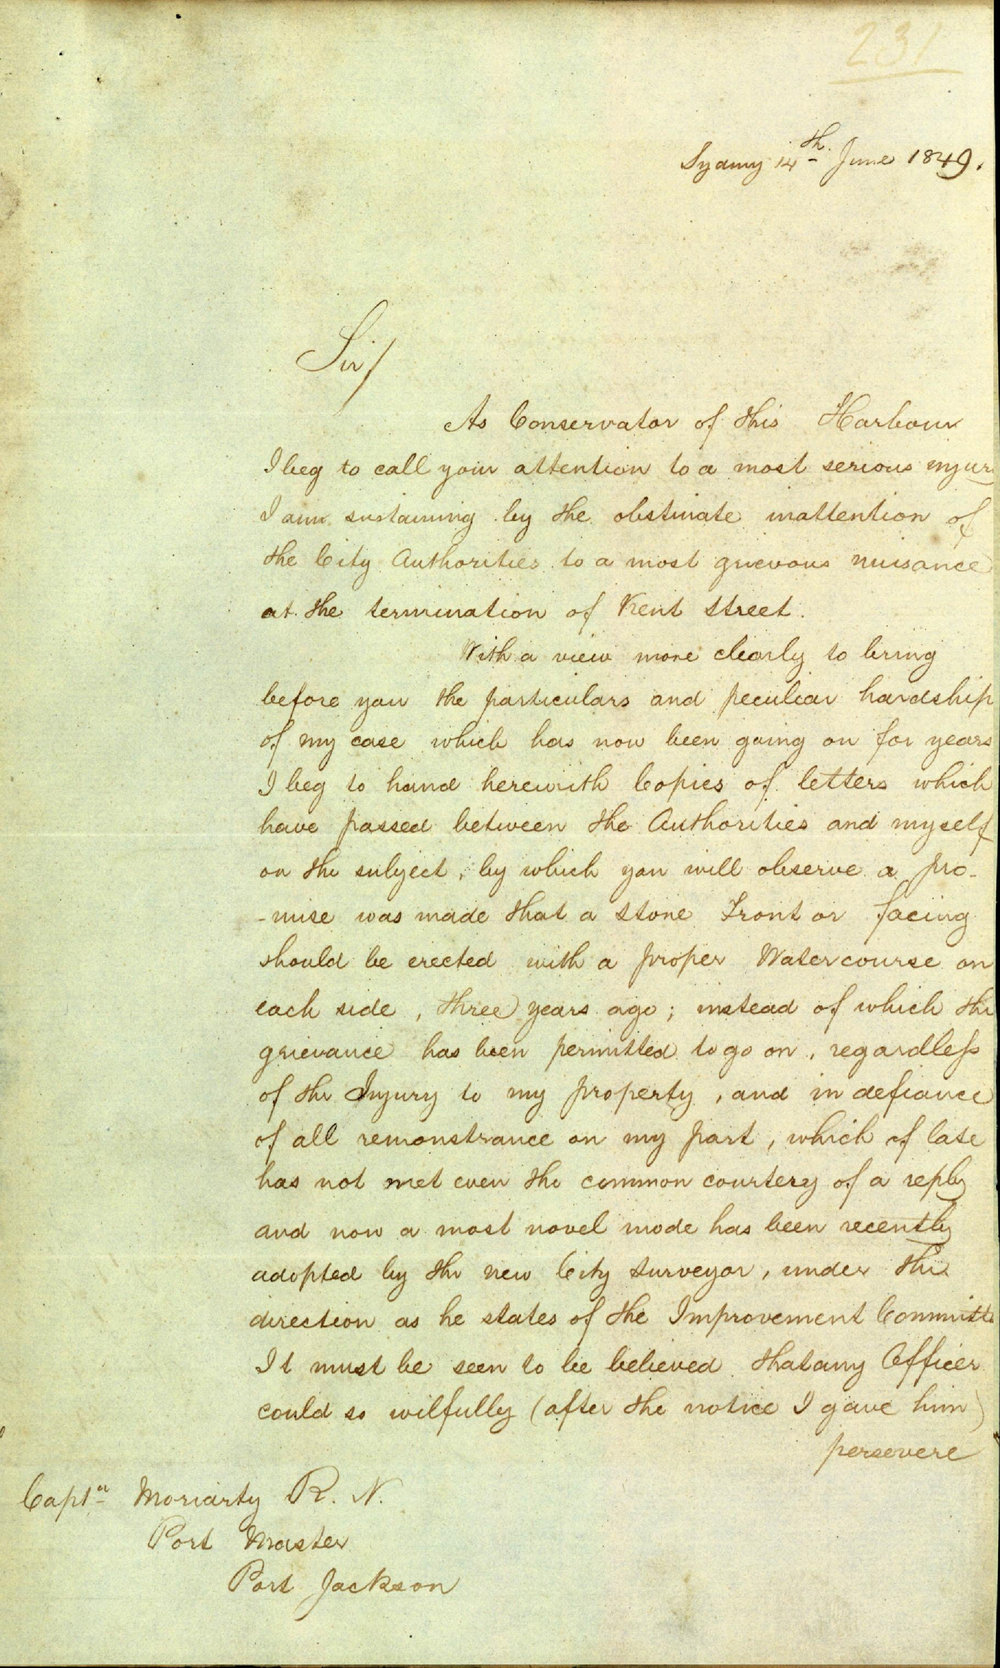 231
Sydney 14th June 1849.
Sir/
As Conservator of this Harbour
I beg to call your attention to a most serious injury
I am sustaining by the obstinate inattention of
the City Authorities to a most grievous nuisance
at the termination of Kent Street.
With a view more clearly to bring
before you the particulars and peculiar hardship
of my case which has now been going on for years
I beg to hand herewith Copies of letters which
have passed between the Authorities and myself
on the subject, by which you will observe a pro-
-mise was made that a Stone Front or facing
should be erected with a proper Watercourse on
each side, three years ago; instead of which the
grievance has been permitted to go on, regardless
of the Injury to my property, and in defiance
of all remonstrance on my part, which of late
has not met even the common courtesy of a reply
and now a most novel mode has been recently
adopted by the new City Surveyor, under the
direction as he states of the Improvement Committe
It must be seen to be believed that any Officer
could so wilfully (after the notice I gave him)
persevere
Captn Moriarty R. N.
Port Master
Port Jackson